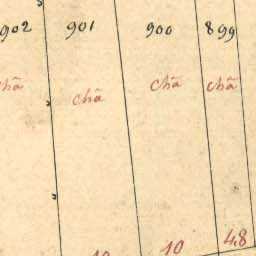 902 901 900 899
chã chã chã chã
10 10 48